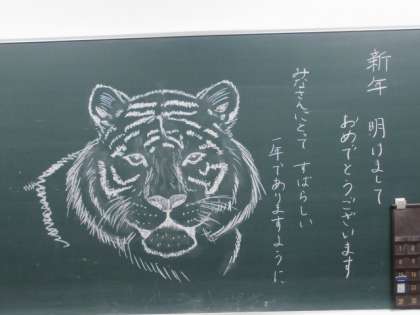 新年 明けまして
おめでとうございます
みなさんにとって すばらしい
一年でありますように